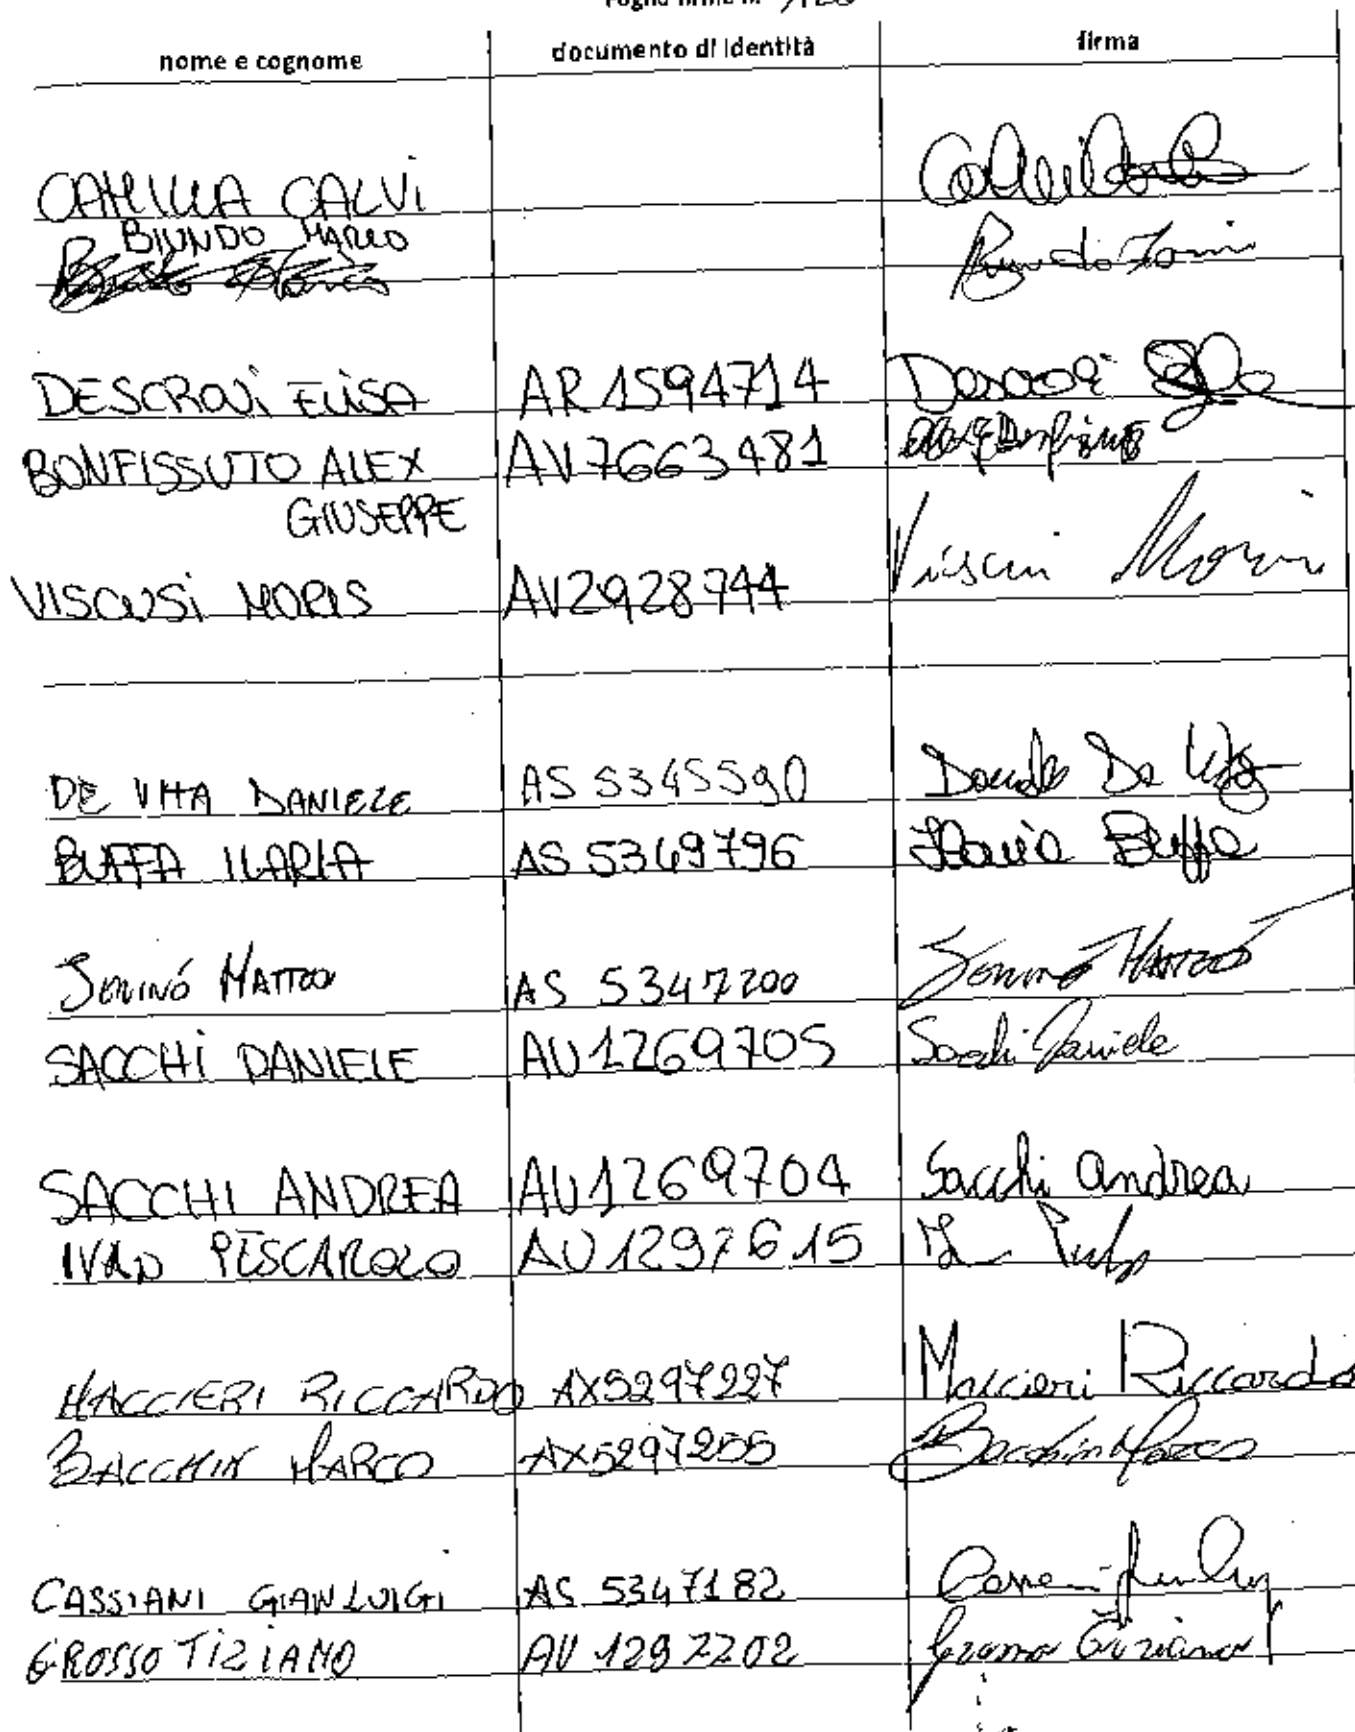 Foglio firme n.
nome e cognome documento di identità firma
CAMILLA CALVI
BIUNDO MARCO
DESCROVI ELISA AR 1594714 Descrovi
BONFISSUTO ALEX AV7663481
GIUSEPPE
VISCUSI MORIS AV2928744
DE VITA DANIELE AS 5345590 Daniele De Vita
BUFFA ILARIA AS 5349796 Ilaria Buffa
MATTEO AS 5347200 MATTEO
SACCHI DANIELE AU1269705 Sacchi Daniele
SACCHI ANDREA AU1269704 Sacchi Andrea
IVAN PESCAROLO AU1297615
MACCIERI RICCARDO AX5297227 Maccieri Riccardo
BACCHIN MARCO AX5297255 Bacchin Marco
CASSIANI GIANLUIGI AS 5347182
GROSSO TIZIANO AU 1297202 Grosso Tiziano